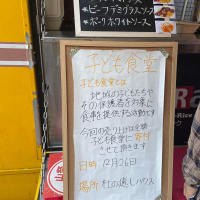 *ビーフデミグラスソース
*ポークホワイトソース
子ども食堂
子ども食堂とは
地域の子どもたちや
その保護者を対象に
食事を提供する活動です
今回の売り上げは全額
子ども食堂に寄付
させて頂きます
日時 12月26日
場所 杜の癒しハウス